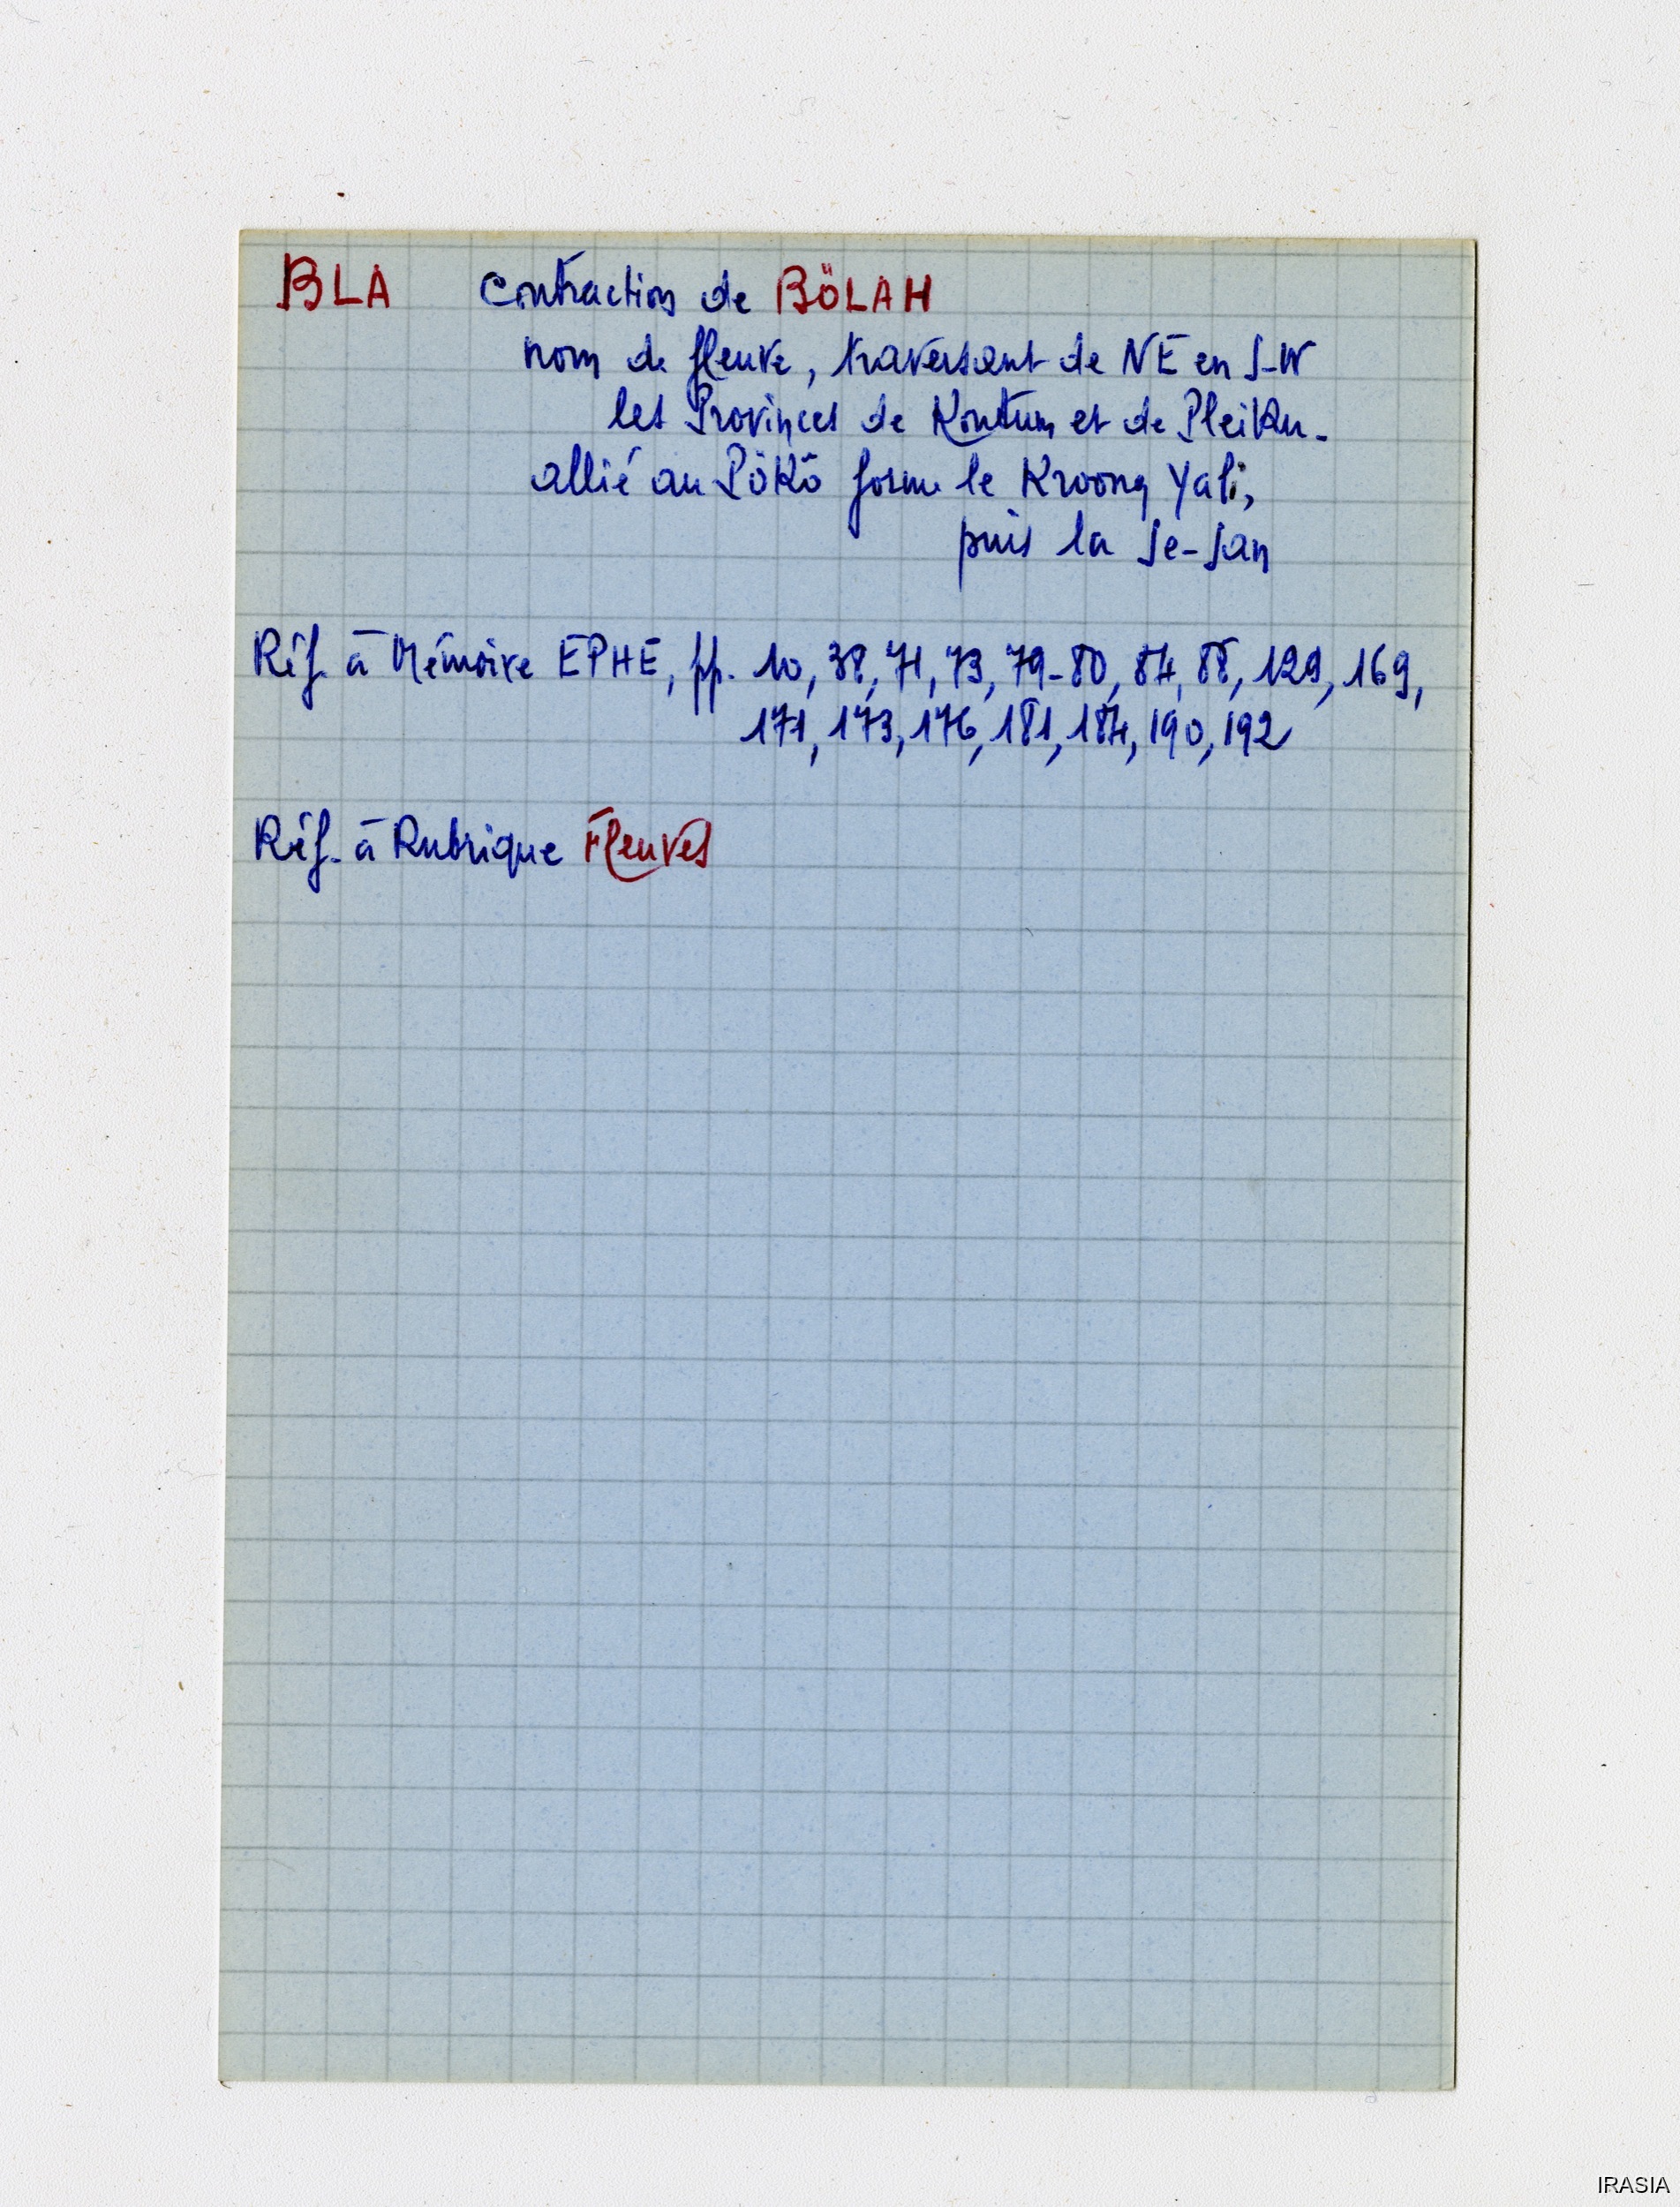 BLA contraction de BÖLAH
nom de fleuve, traversant de NE en S-W
les Provinces de Kontum et de Pleiku.
allié au Pökô forme le Kroong Yali,
puis la Se-San
Réf. à Mémoire EPHE, pp. 10, 38, 71, 73, 79-80, 84, 88, 129, 169,
171, 173, 176, 181, 184, 190, 192
Réf. à Rubrique Fleuves
IRASIA